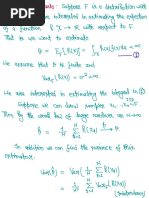 : Suppose F is a distribution with
interested in estimating the expectation
of a function h : X → R with respect to F.
That is we want to estimate
θ = E_F[h(X)] = ∫_X h(x) f(x) dx < ∞
①
We assume that θ is finite and
Var_F(h(X)) = σ² < ∞.
We are interested in estimating the integral in ①.
Suppose we can draw samples X₁, ..., X_N
Then, by the weak law of large numbers, as N → ∞
θ̂ = 1/N Σ h(X_t)
In addition we can find the variance of this
estimator.
Var(θ̂) = Var( 1/N Σ h(X_t) )
= 1/N² Σ Var(h(X_t))
(Independence)